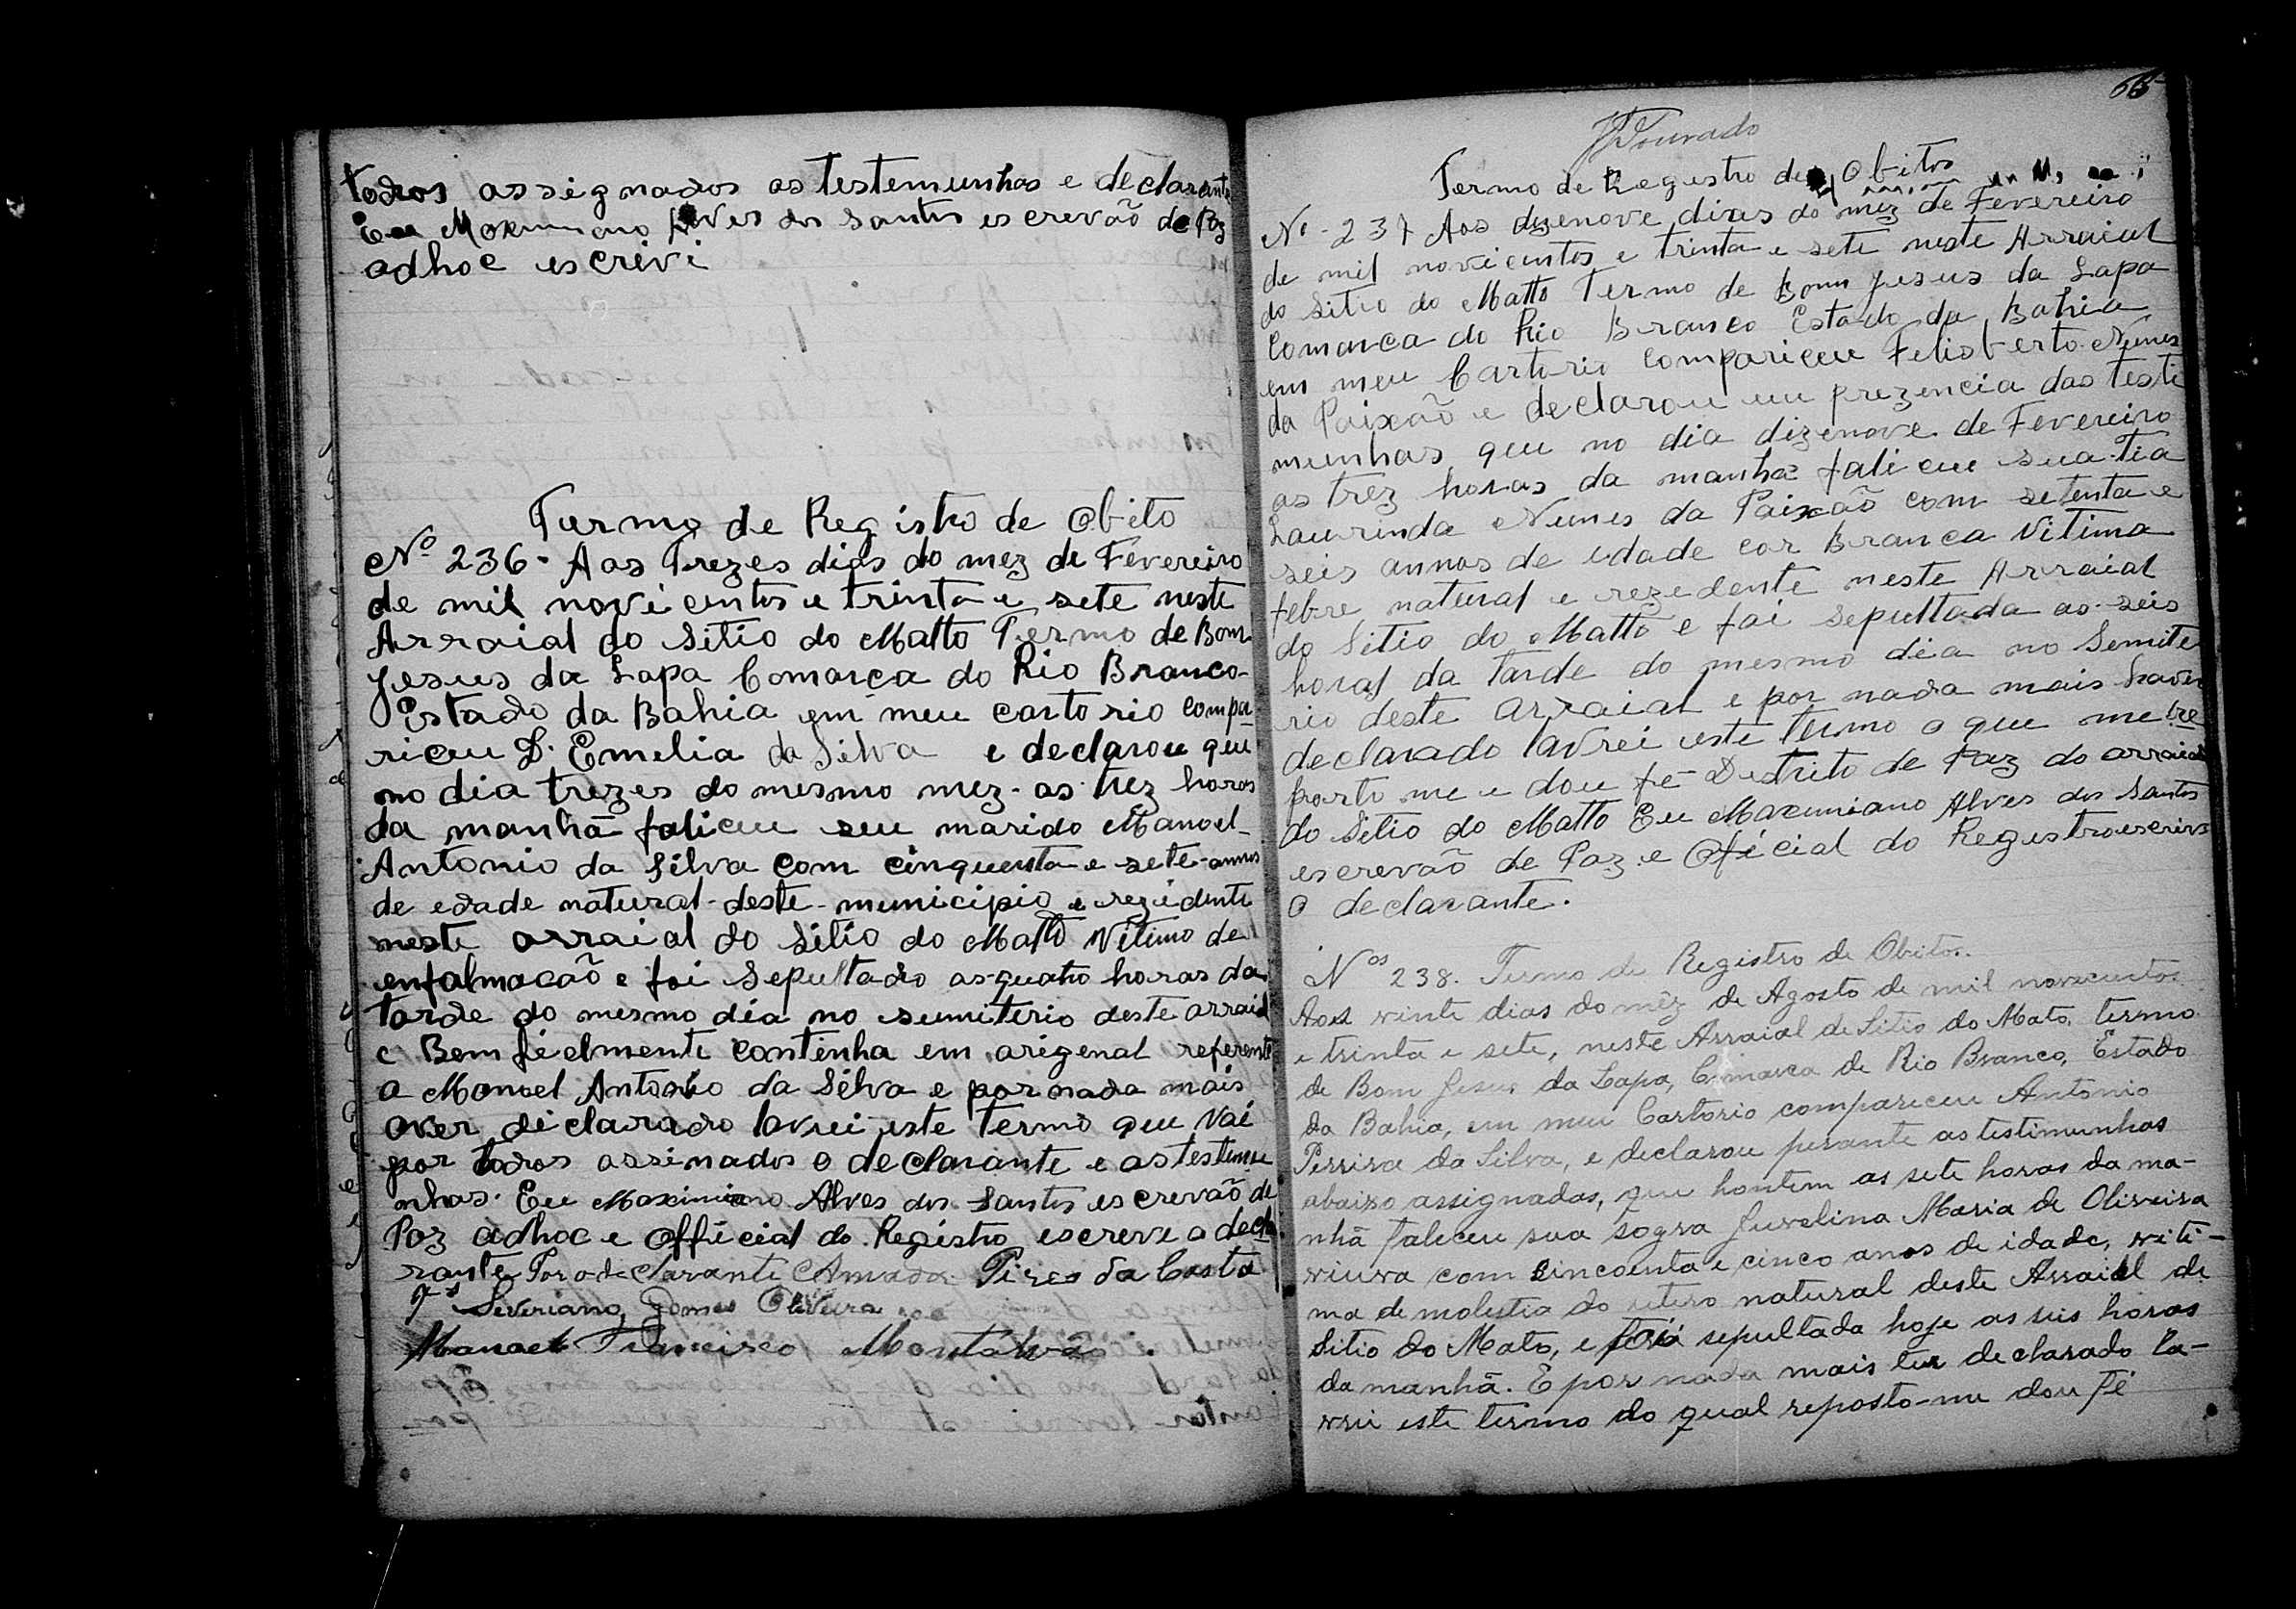 todos assignados as testemunhas e declarante
Eu Maximiano Alves dos Santos escrevão de Paz
adhoc escrivi
Termo de Registro de Obito
Nº 236 - Aos Trezes dias do mez de Fevereiro
de mil novicentos e trinta e sete neste
Arraial do Sitio do Matto Termo de Bom
Jesus da Lapa Comarca do Rio Branco -
Estado da Bahia em meu cartorio compa-
riceu D. Emelia da Silva e declarou que
no dia trezes do mesmo mez - as trez horas
da manhã faliceu seu marido Manoel -
Antonio da Silva com cinquenta e sete - annos
de edade natural - deste - municipio e rezidente
neste arraial do Sitio do Matto Vitimo de
enfalmacaõ e foi Sepultado as quatro horas da
tarde do mesmo dia no sumiterio deste arraial
e Bem fielmente continha em origenal referente
a Manoel Antonio da Silva e por nada mais
aver declarado lavrei este termo que vai
por todos assinados o declarante e as testemu
nhas. Eu Maximiano Alves dos Santos escrevão de
Paz adhoc e Official do Registro escreve o decla
rante Por o declarante Amador Pires da Costa
Tª Severiano Gomes Oliveira
Manoel Francisco Montalvão.
65
Dourado
Termo de Registro de Obitos
Nº - 237 Aos dizenove dias do mez de Fevereiro
de mil novicentos e trinta e sete neste Arraial
do Sitio do Matto Termo de Bom Jesus da Lapa
Comarca do Rio Branco Estado da Bahia
em meu Cartorio compariceu Felisberto Nunes
da Paixão e declarou em prezencia das testi
munhas que no dia dizenove de Fevereiro
as trez horas da manhã faliceu sua tia
Laurinda Nunes da Paixão com setenta e
seis annos de edade cor Branca Vitima
febre natural e rezedente neste Arraial
do Sitio do Matto e foi sepultada as seis
horas da tarde do mesmo dia no Semite
rio deste arraial e por nada mais haver
declarado lavrei este termo o que me re
porto me e dou fé - Destrito de Paz do arraial
do Sitio do Matto Eu Maximiano Alves dos Santos
escrevão de Paz e Oficial do Registro escrivi
O declarante.
Nos 238. Termo de Registro de Obitos.
Aos vinte dias do mêz de Agosto de mil novecentos
e trinta e sete, neste Arraial de Sitio do Mato, termo
de Bom Jesus da Lapa, Comarca de Rio Branco, Estado
da Bahia, em meu Cartorio compareceu Antonio
Perrira da Silva, e declarou perante as testimunhas
abaixo assignadas, que hontem as sete horas da ma-
nhã faleceu sua sogra Juvelina Maria de Oliveira
viuva com sincoenta e cinco anos de idade, viti-
ma de molestia do utero natural deste Arraial de
Sitio do Mato, e foi sepultada hoje as seis horas
da manhã. E por nada mais ter declarado la-
vrei este termo do qual reposto-me dou fé